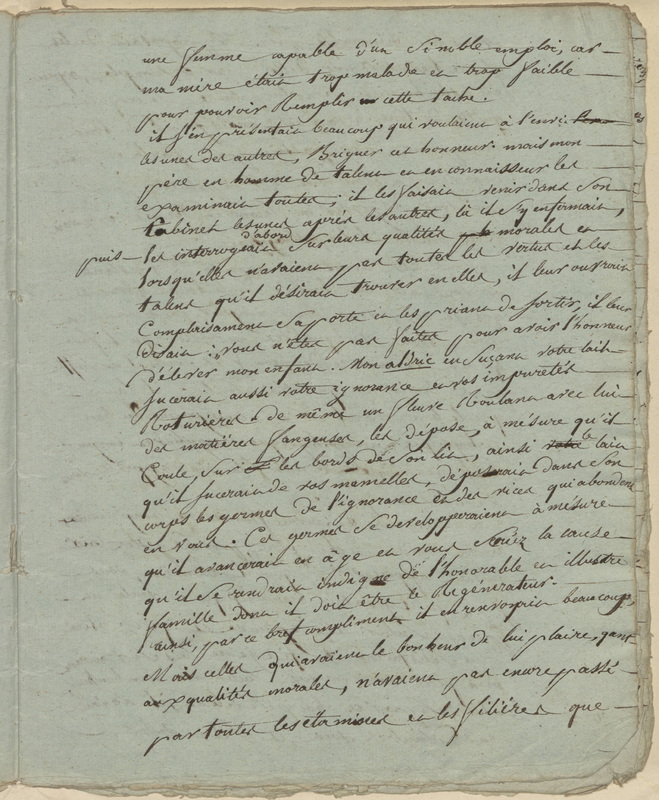 une femme capable d'un semble emploi, car
ma mère était trop malade et trop faible
pour pouvoir Remplir cette tache.
il s'en présentait beaucoup qui voulaient à l'envi
les unes des autres, Briguer cet honneur mais mon
père en homme de talent et en connaisseur les
examinait toutes; il les faisait venir dans son
Cabinet les unes après les autres, là il s'y enfermait,
puis les interrogeait d'abord sur leurs qualités morales et
lorsqu'elles n'avaient pas toutes les vertus et les
talens qu'il désirait trouver en elles, il leur ouvrait
Complaisament sa porte et les priant de sortir, il leur
Disait: vous n'êtes pas faites pour avoir l'honneur
d'élever mon enfant. Mon aldric en suçant votre lait
sucerait aussi votre ignorance et vos impuretés
Roturières. de même un fleuve Roulant avec lui
des matières fangeuses, les dépose, à mésure qu'il
Coule, sur les bords de son lit, ainsi le lait
qu'il sucerait de vos mamelles, déposerait dans son
corps les germes de l'ignorance et des vices qui abondent
en vous. Ces germes se developperaient à mésure
qu'il avancerait en âge et vous seriez la cause
qu'il se rendrait indigne de l'honorable et illustre
famille dont il doit être le Régénérateur.
ainsi, par ce bref compliment, il en renvoyait beaucoup,
Mais celles qui avaient le bonheur de lui plaire, quant
aux qualités morales, n'avaient pas encore passé
par toutes les étamines et les filières que